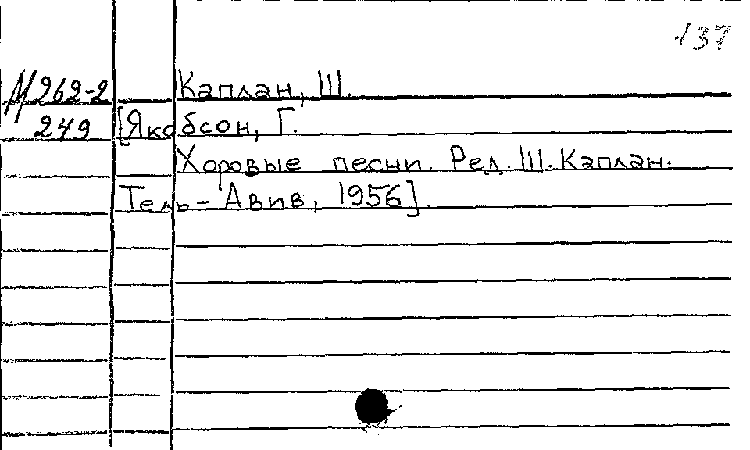 137
М 262-2 Каплан, Ш.
249 [Якобсон, Г.
Хоровые песни. Ред. Ш. Каплан.
Тель-Авив, 1956].